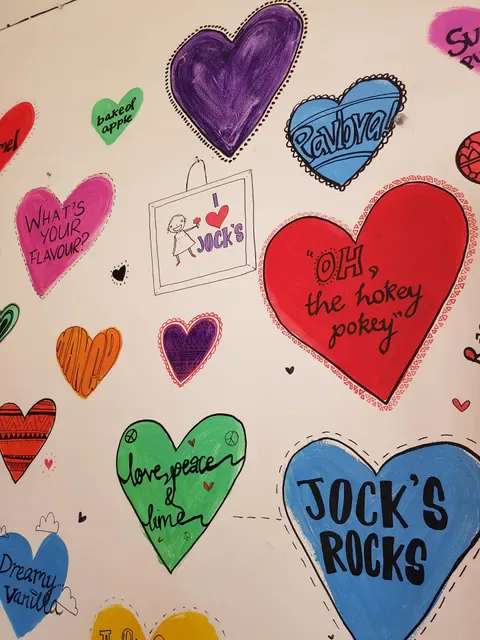 baked
apple
Pavlova!
WHAT'S
YOUR
FLAVOUR?
I
JOCK'S
"OH,
the hokey
pokey"
love, peace
&
lime
JOCK'S
ROCKS
Dreamy
Vanilla